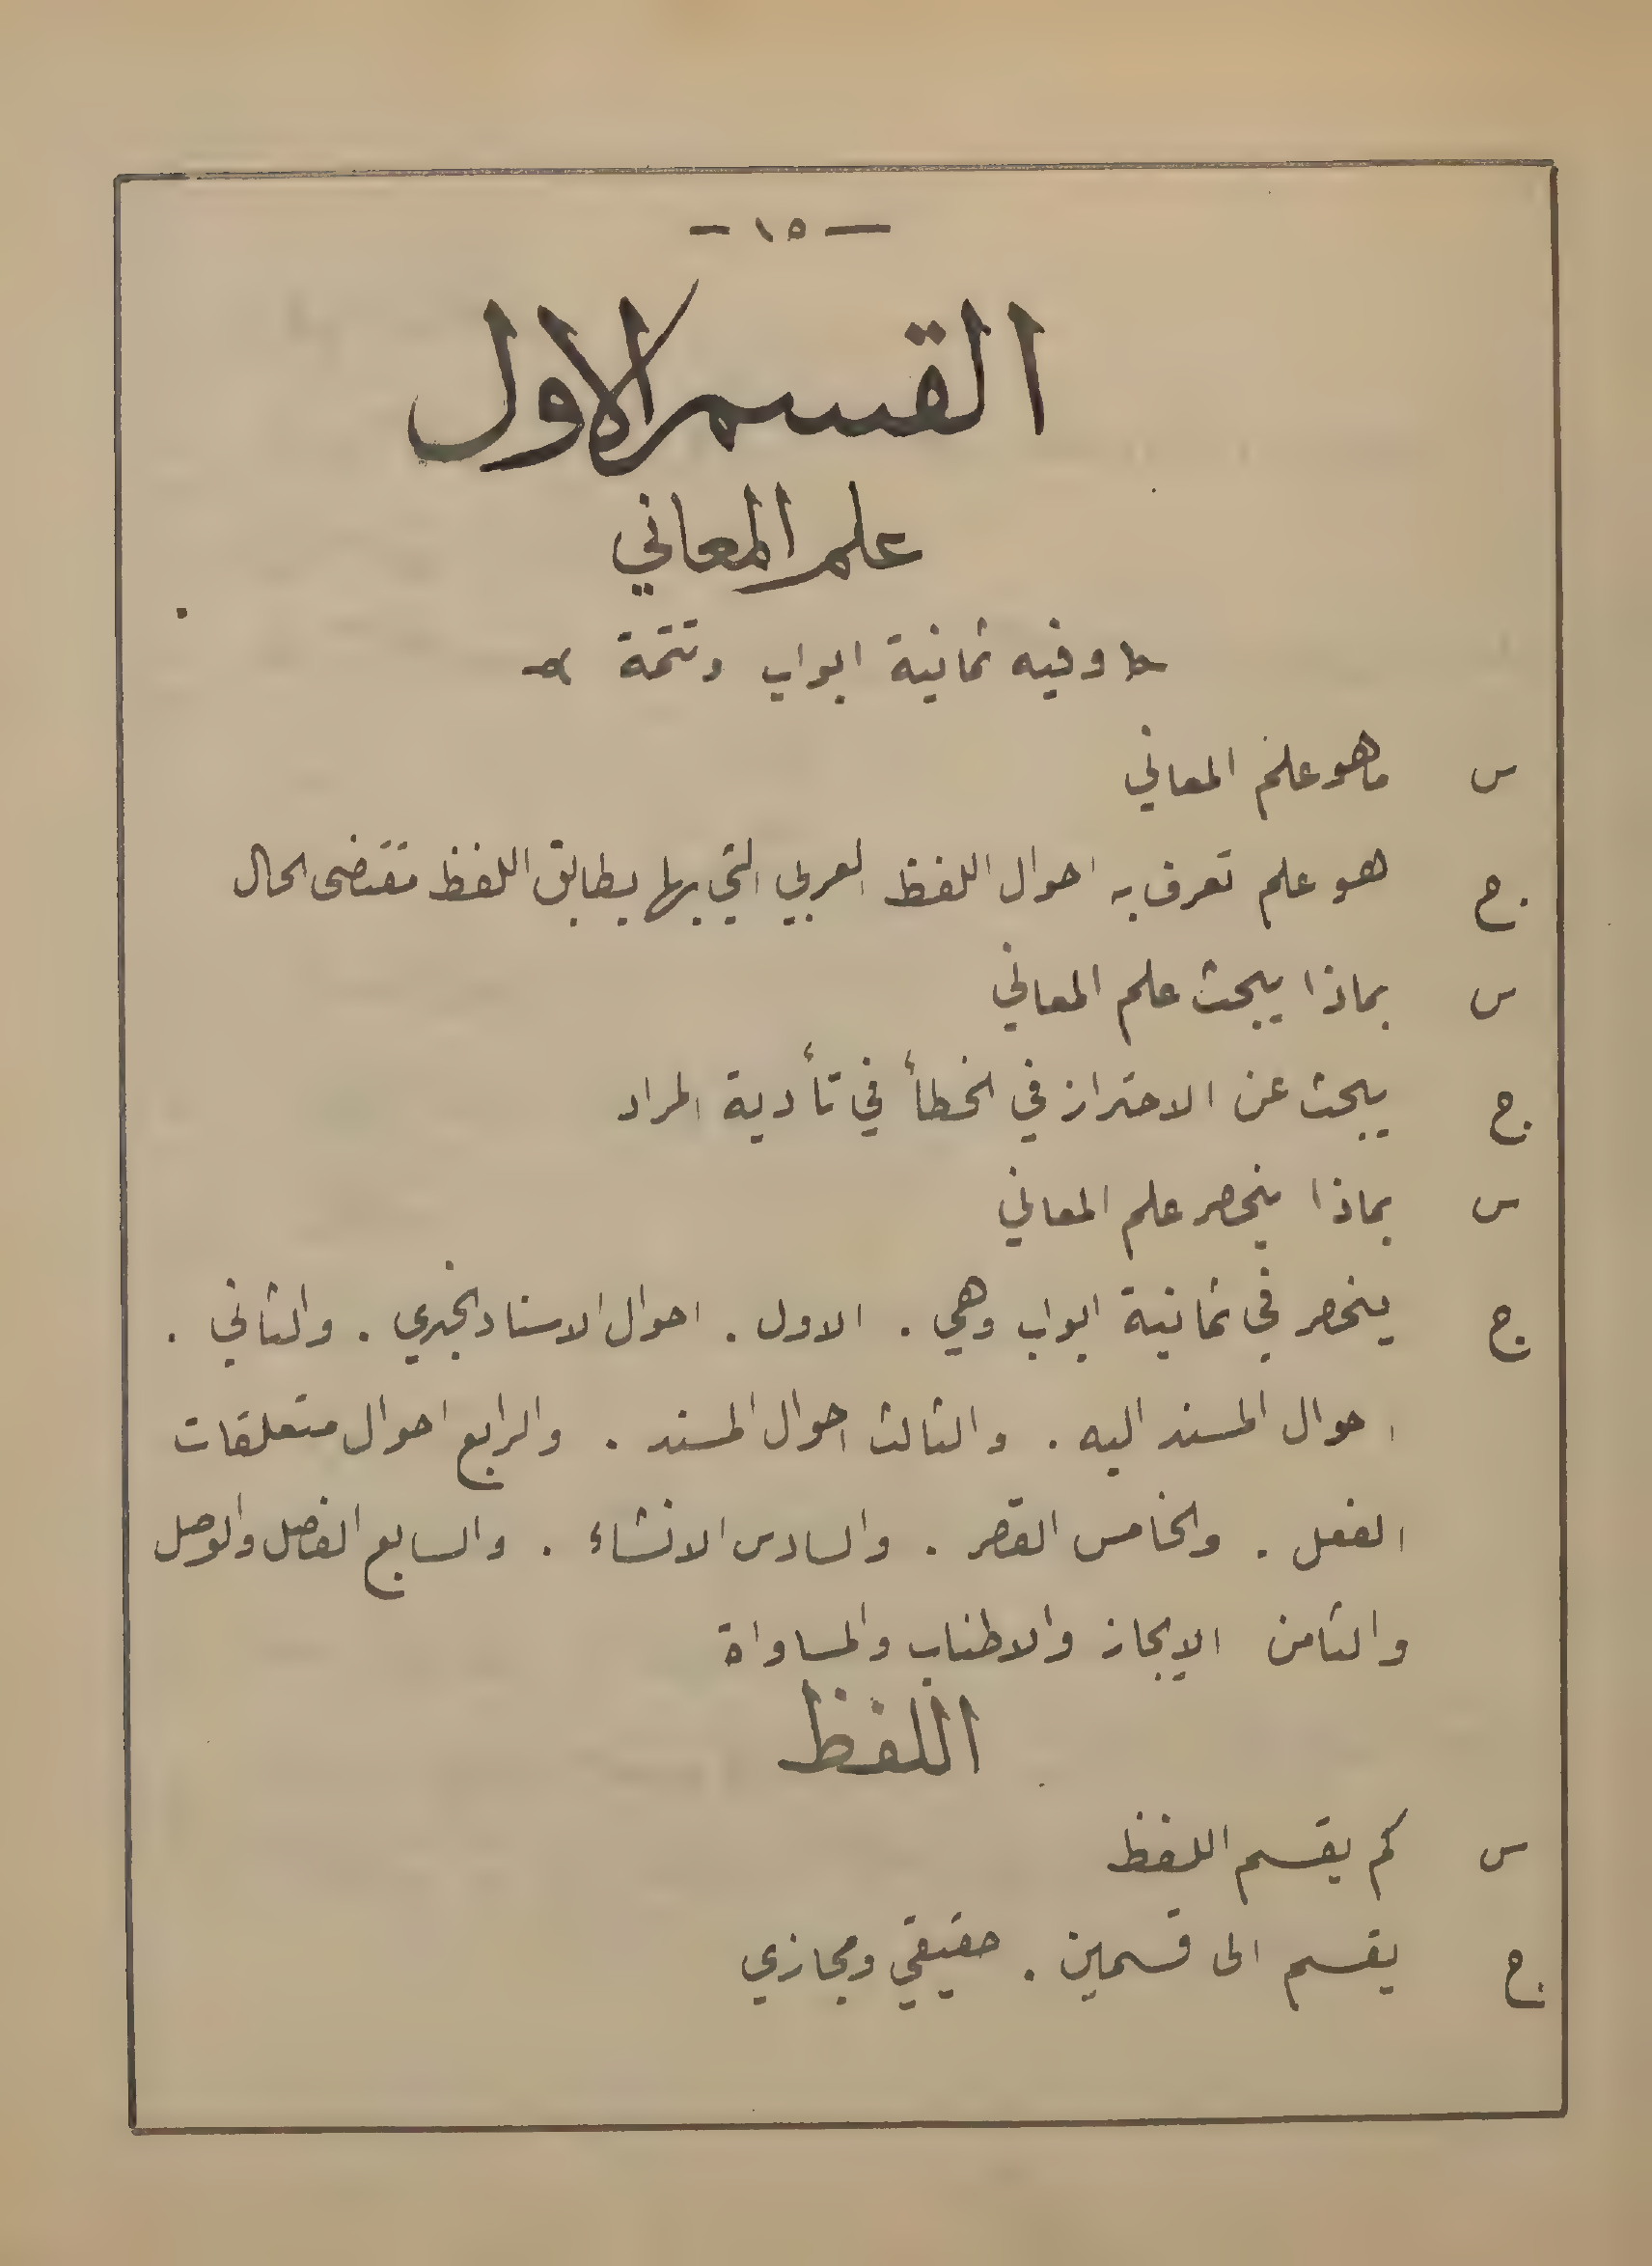 — ١٥ —
القسم الاول
علم المعاني
وفيه ثمانية ابواب وتتمة
س ماهو علم المعاني
ج هو علم تعرف به احوال اللفظ العربي التي بها يطابق اللفظ مقتضى الحال
س بماذا يبحث علم المعاني
ج يبحث عن الاحتراز في الخطأ في تأدية المراد
س بماذا ينحصر علم المعاني
ج ينحصر في ثمانية ابواب وهي . الاول . احوال الاسناد الخبري . والثاني .
احوال المسند اليه . والثالث احوال المسند . والرابع احوال متعلقات
الفعل . والخامس القصر . والسادس الانشاء . والسابع الفصل والوصل
والثامن الايجاز والاطناب والمساواة
اللفظ
س كم يقسم اللفظ
ج يقسم الى قسمين . حقيقي ومجازي